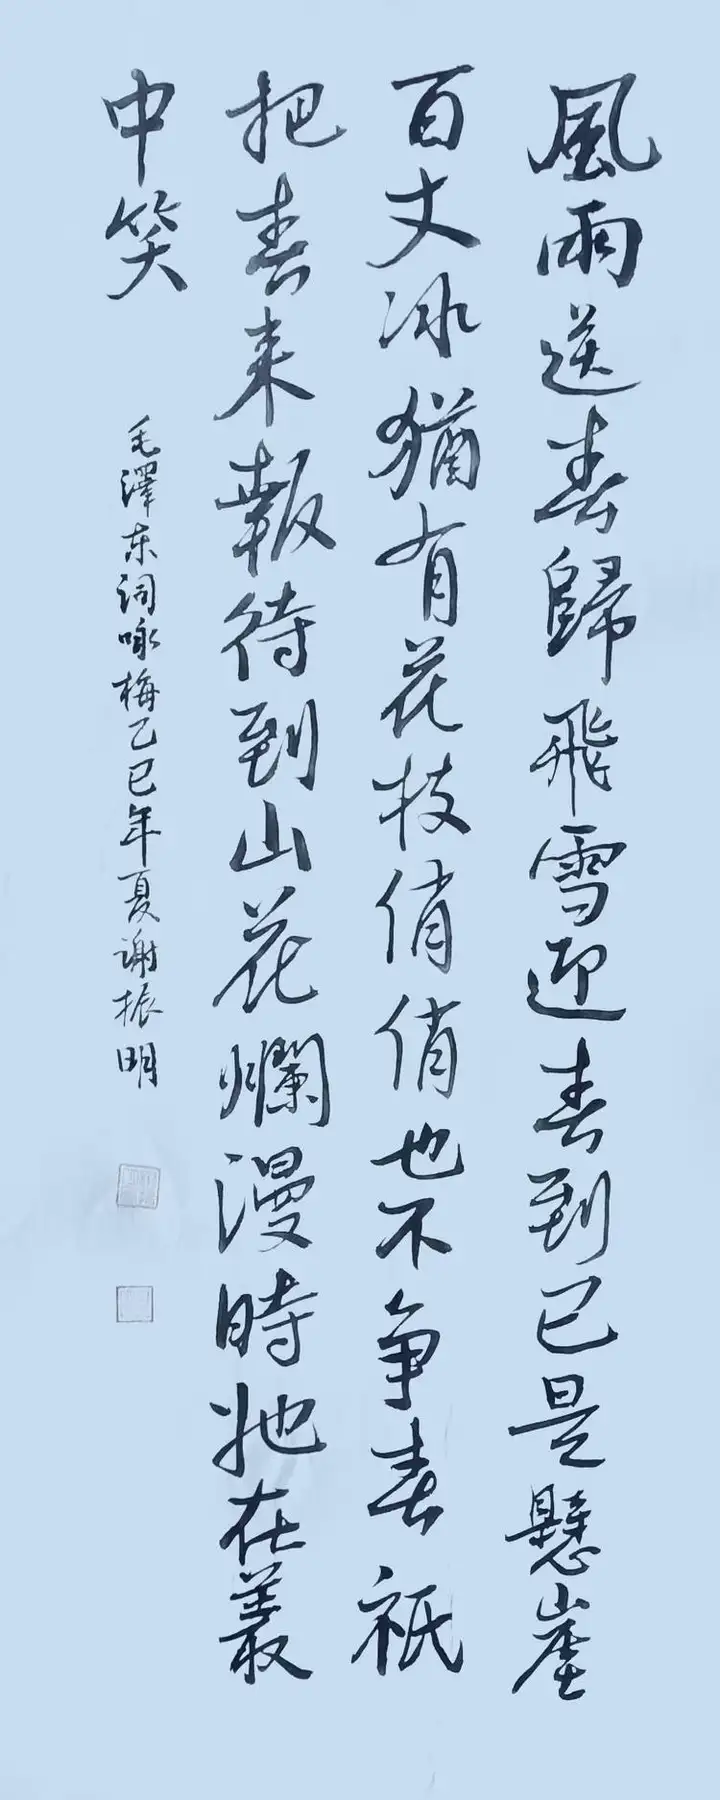 風雨送春歸飛雪迎春到已是懸崖
百丈冰猶有花枝俏俏也不争春祇
把春来報待到山花爛漫時她在叢
中笑
毛澤东词咏梅乙巳年夏谢振明